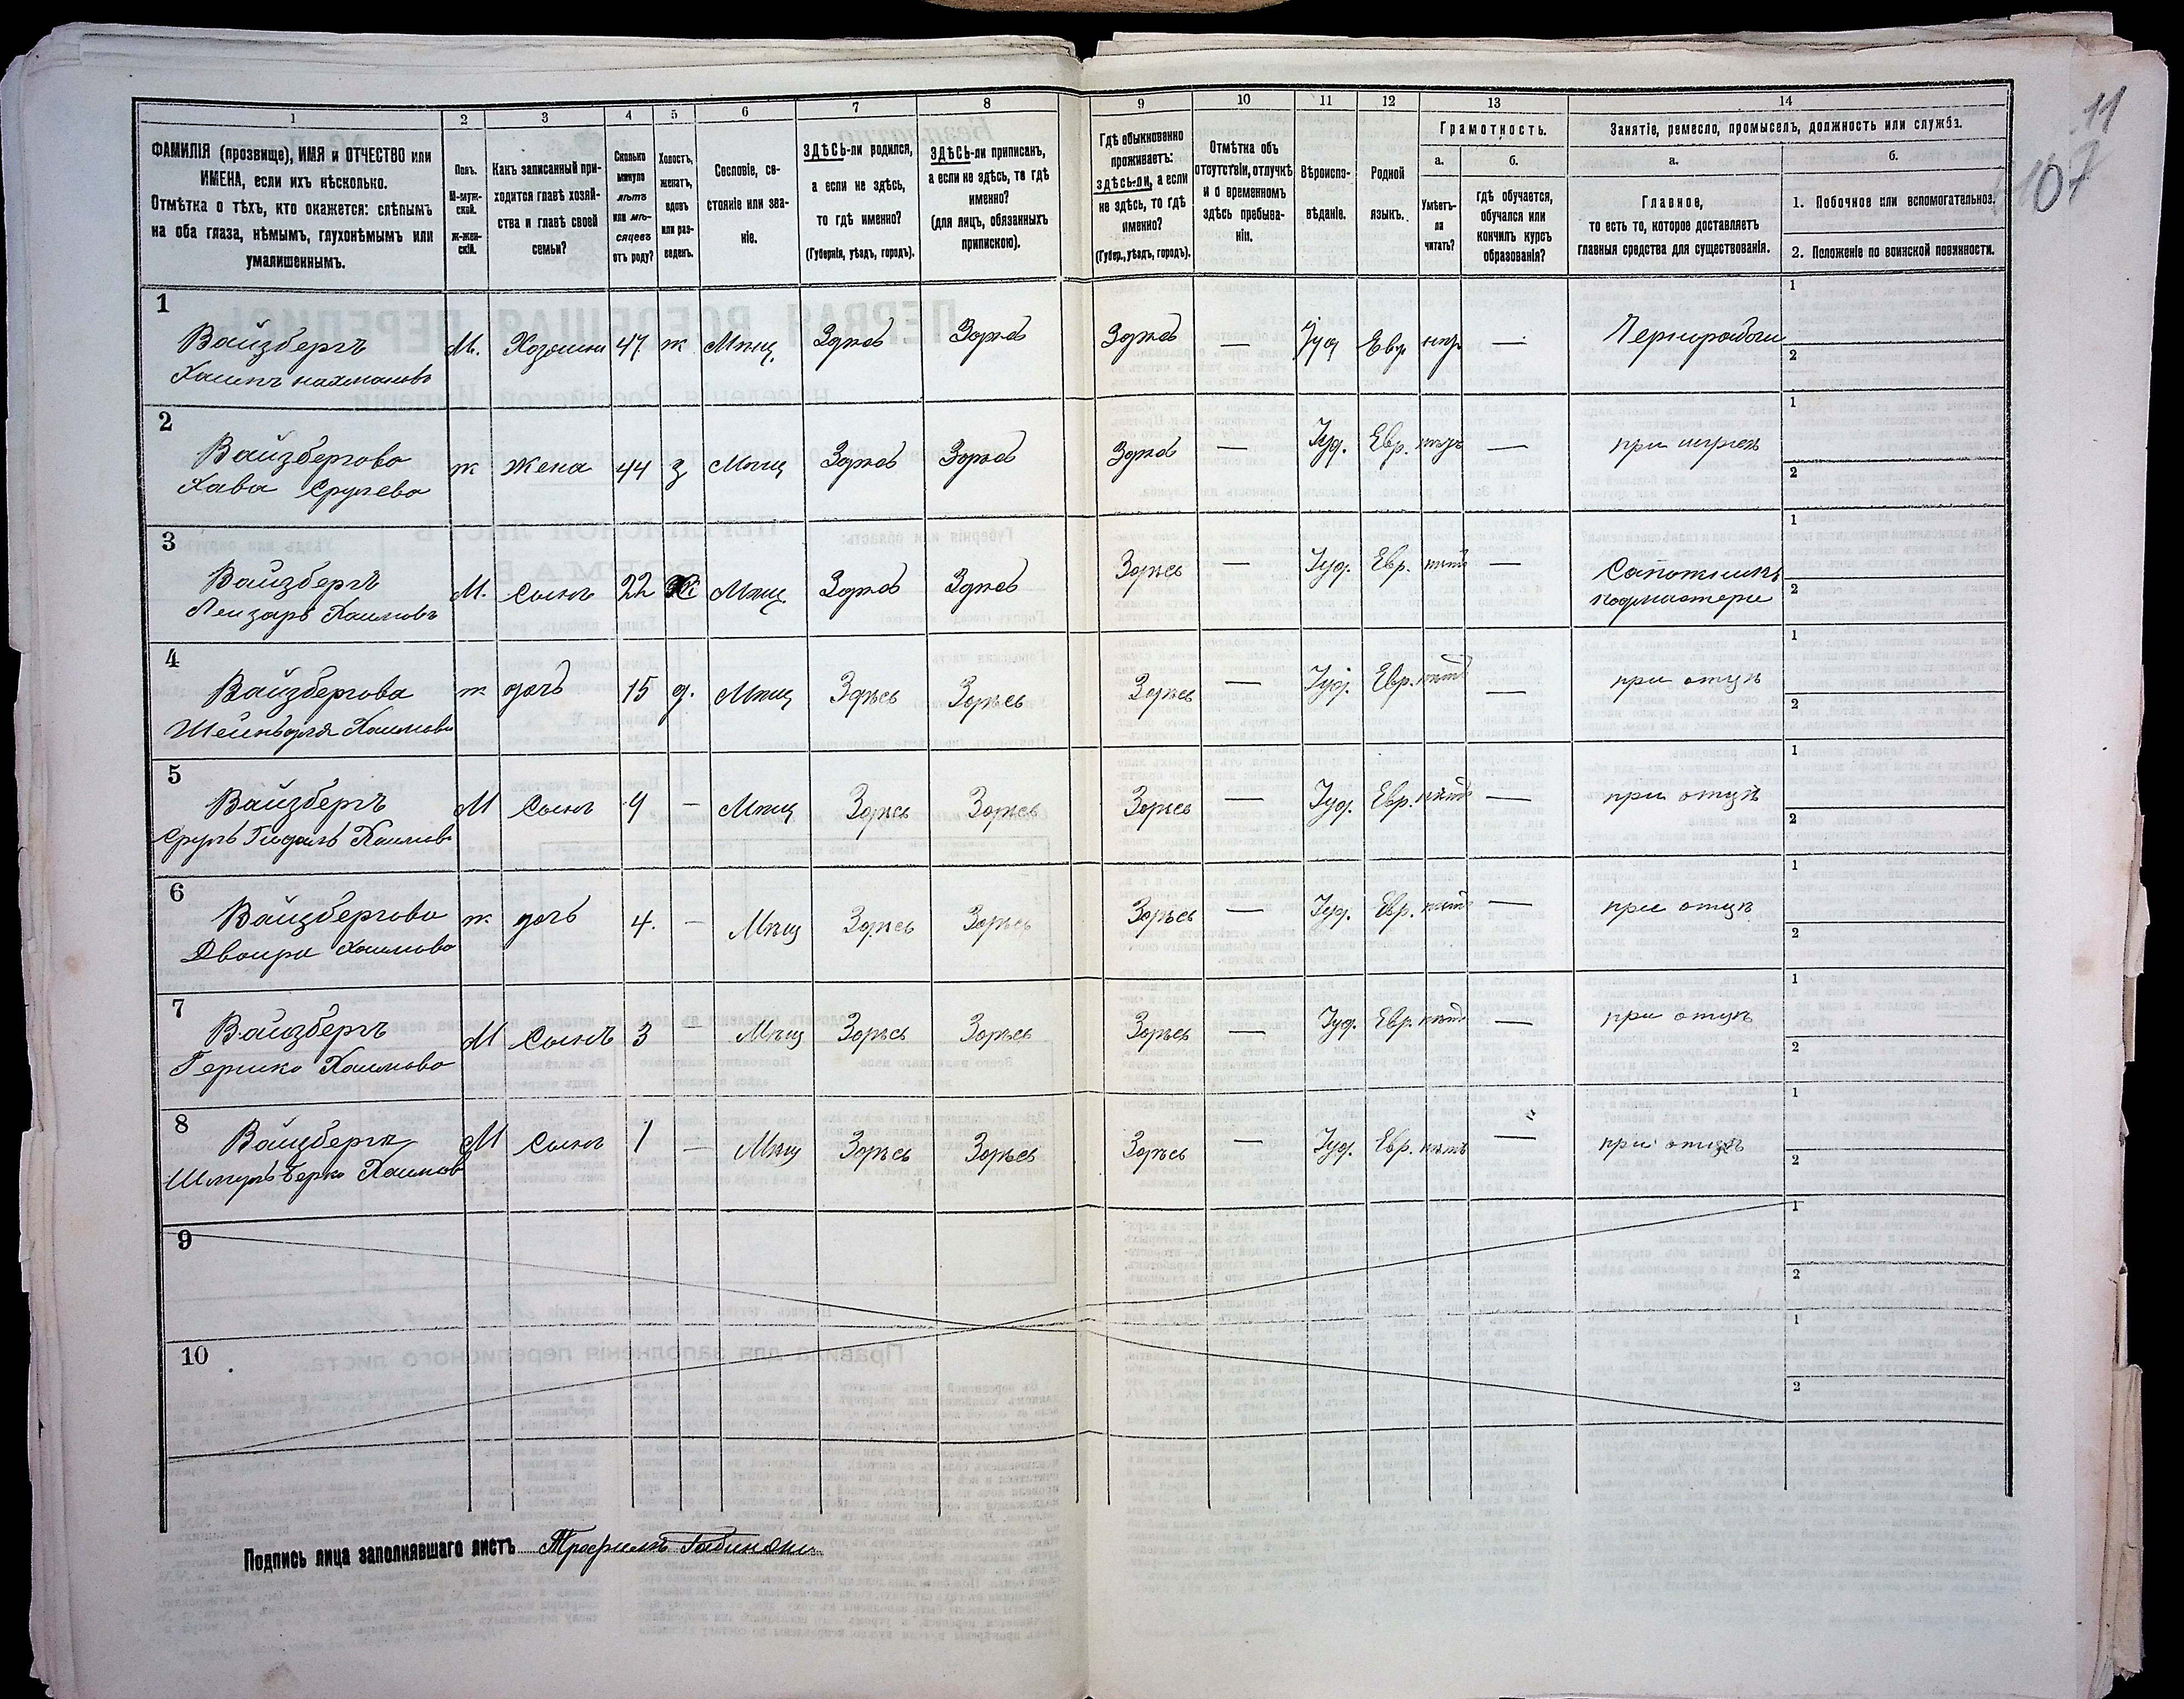 11
107
1 2 3 4 5 6 7 8 9 10 11 12 13 14
ФАМИЛІЯ (прозвище), ИМЯ и ОТЧЕСТВО или ИМЕНА, если ихъ нѣсколько.
Отмѣтка о тѣхъ, кто окажется: слѣпымъ на оба глаза, нѣмымъ, глухонѣмымъ или умалишеннымъ.
Полъ. М-мужской. Ж-женскій.
Какъ записанный приходится главѣ хозяйства и главѣ своей семьи?
Сколько минуло лѣтъ или мѣсяцевъ отъ роду?
Холостъ, женатъ, вдовъ или разведенъ.
Сословіе, состояніе или званіе.
ЗДѢСЬ-ли родился, а если не здѣсь, то гдѣ именно? (Губернія, уѣздъ, городъ).
ЗДѢСЬ-ли приписанъ, а если не здѣсь, то гдѣ именно? (для лицъ, обязанныхъ припискою).
Гдѣ обыкновенно проживаетъ: здѣсь-ли, а если не здѣсь, то гдѣ именно? (Губер., уѣздъ, городъ).
Отмѣтка объ отсутствіи, отлучкѣ и о временномъ здѣсь пребываніи.
Вѣроисповѣданіе.
Родной языкъ.
Грамотность.
а. Умѣетъ-ли читать?
б. гдѣ обучается, обучался или кончилъ курсъ образованія?
Занятіе, ремесло, промыселъ, должность или служба.
а. Главное, то есть то, которое доставляетъ главныя средства для существованія.
б. 1. Побочное или вспомогательное.
2. Положеніе по воинской повинности.
1 Вайзбергъ М. Хозяинъ 47 ж Мѣщ. Здѣсь Здѣсь Здѣсь — Іуд Евр. — Чернорабочій 1 2
Хаимъ Нахмановъ
2 Вайзбергова ж Жена 44 з Мѣщ Здѣсь Здѣсь Здѣсь — Іуд. Евр. — при мужѣ 1 2
Хава Срулева
3 Вайзбергъ М. Сынъ 22 Мѣщ Здѣсь Здѣсь Здѣсь — Іуд. Евр. нѣтъ — Сапожникъ подмастерье 1 2
Лейзаръ Хаимовъ
4 Вайзбергова ж дочь 15 д. Мѣщ Здѣсь Здѣсь Здѣсь — Іуд. Евр. нѣтъ — при отцѣ 1 2
Хаимова
5 Вайзбергъ М Сынъ 9 — Мѣщ Здѣсь Здѣсь Здѣсь — Іуд. Евр. нѣтъ — при отцѣ 1 2
Сруль Гидаль Хаимовъ
6 Вайзбергова ж дочь 4. — Мѣщ Здѣсь Здѣсь Здѣсь — Іуд. Евр. нѣтъ — при отцѣ 1 2
Двойра Хаимова
7 Вайзбергъ М Сынъ 3 — Мѣщ Здѣсь Здѣсь Здѣсь — Іуд. Евр. нѣтъ — при отцѣ 1 2
Гершко Хаимовъ
8 Вайзбергъ М Сынъ 1 — Мѣщ Здѣсь Здѣсь Здѣсь — Іуд. Евр. нѣтъ — при отцѣ 1 2
Шмуль Берко Хаимовъ
9 1 2
10 1 2
Подпись лица заполнявшаго листъ Трофимъ